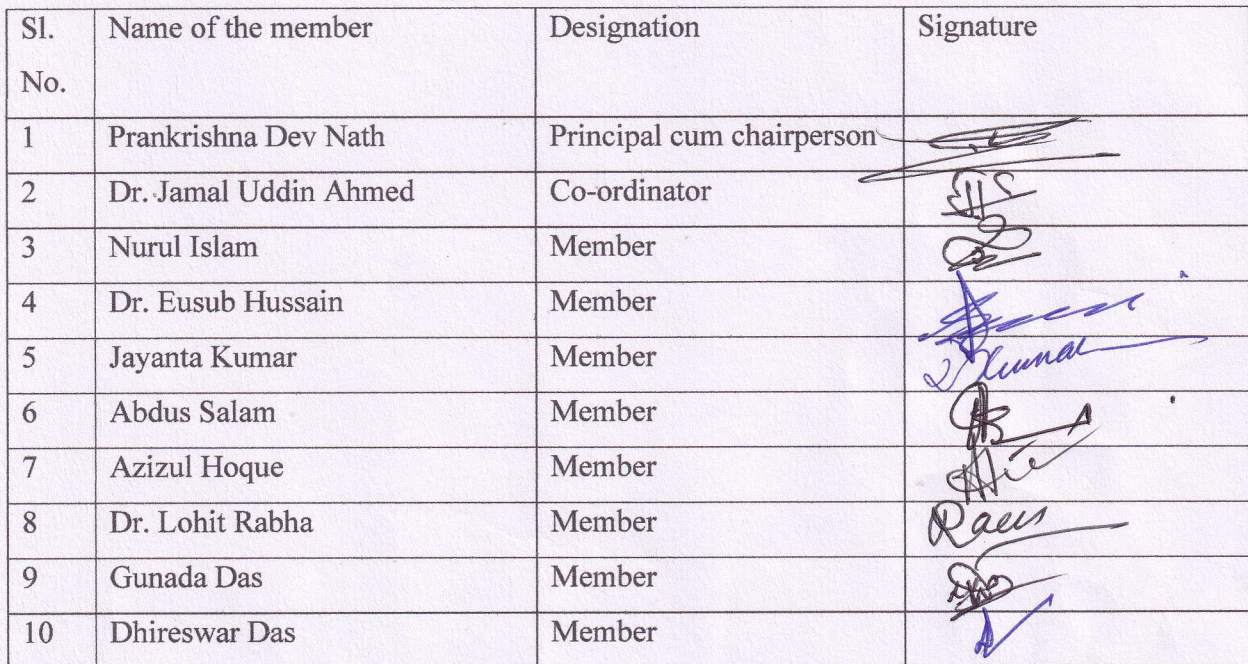 Sl. No. Name of the member Designation Signature
1 Prankrishna Dev Nath Principal cum chairperson
2 Dr. Jamal Uddin Ahmed Co-ordinator
3 Nurul Islam Member
4 Dr. Eusub Hussain Member
5 Jayanta Kumar Member
6 Abdus Salam Member
7 Azizul Hoque Member
8 Dr. Lohit Rabha Member
9 Gunada Das Member
10 Dhireswar Das Member